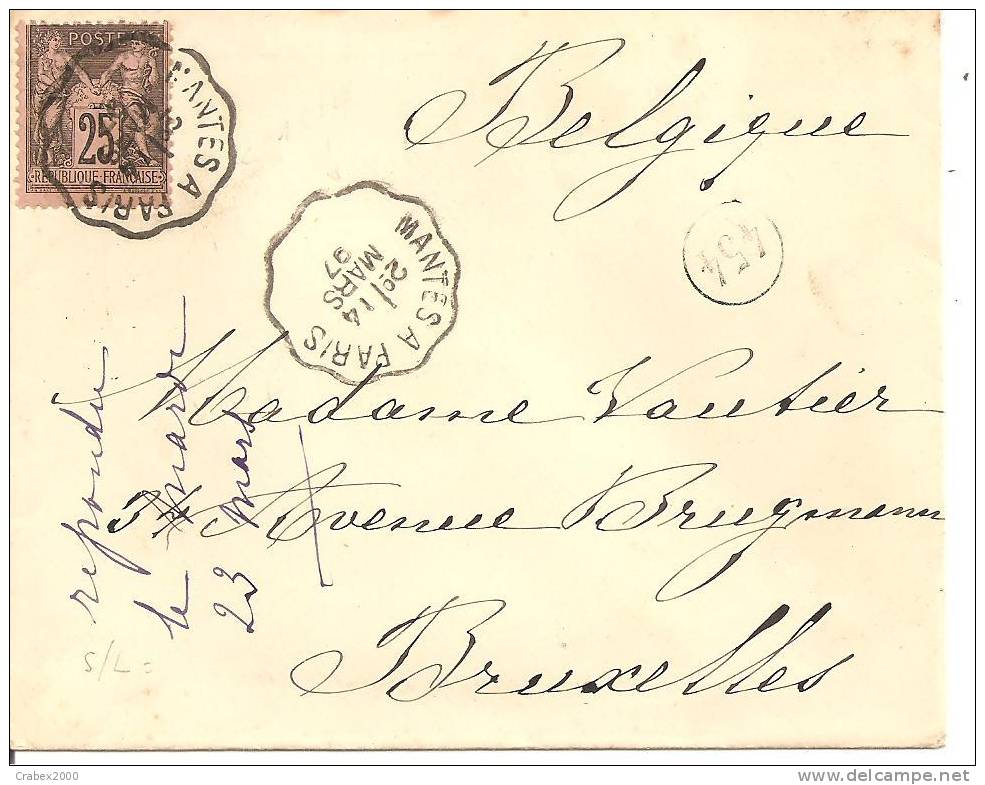 POSTE
25
REPUBLIQUE FRANÇAISE
MANTES A PARIS
Belgique
454
MANTES A PARIS
14
MARS
97
Madame Vautier
Avenue Brugmann
Bruxelles
repondu
le mardi
23 mars
S/L =
Crabex2000
www.delcampe.net